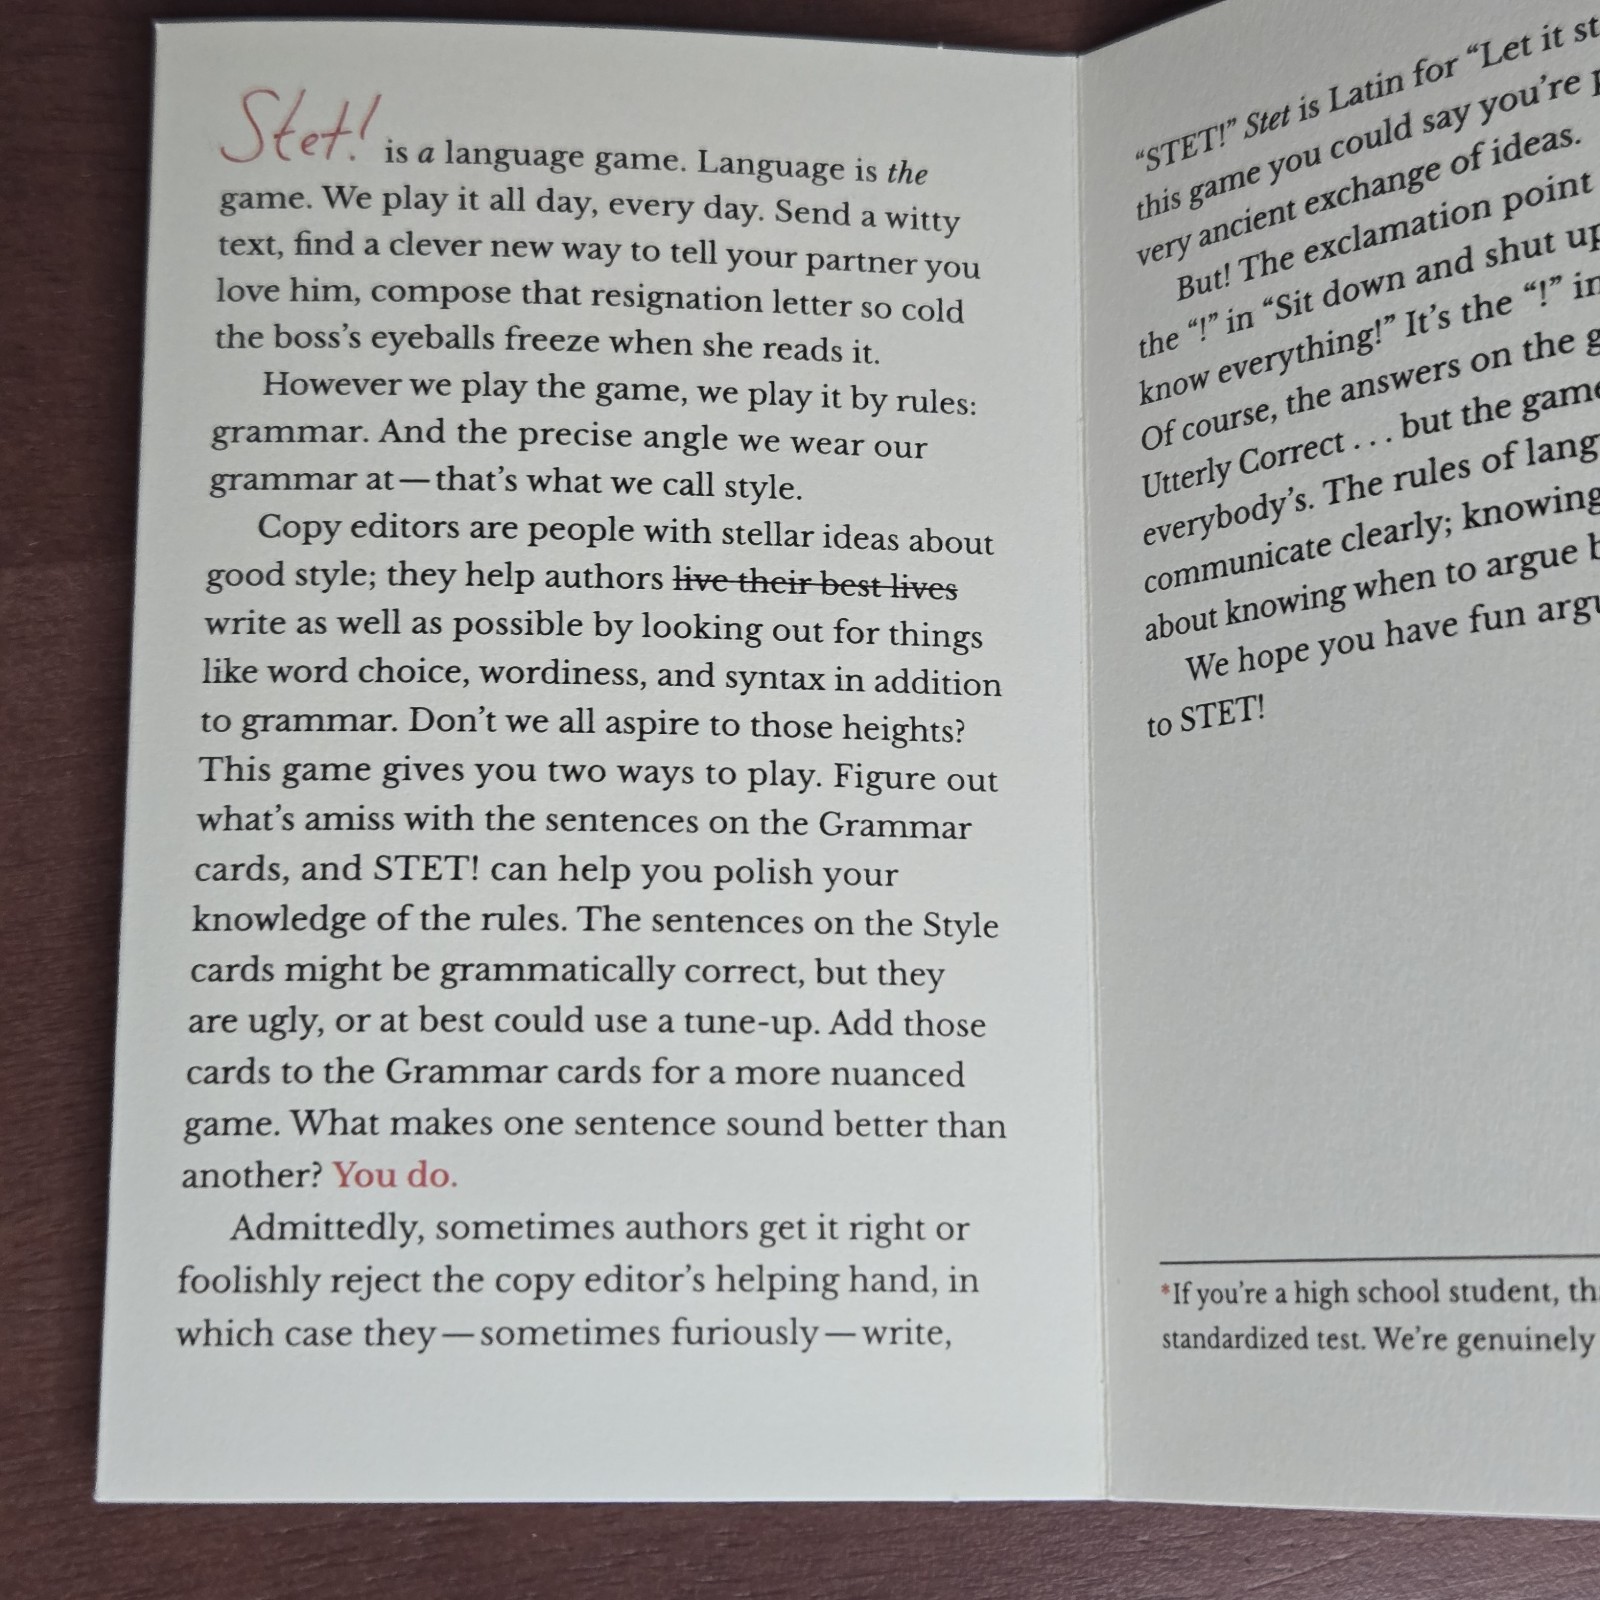 Stet! is a language game. Language is the
game. We play it all day, every day. Send a witty
text, find a clever new way to tell your partner you
love him, compose that resignation letter so cold
the boss's eyeballs freeze when she reads it.
However we play the game, we play it by rules:
grammar. And the precise angle we wear our
grammar at — that's what we call style.
Copy editors are people with stellar ideas about
good style; they help authors live their best lives
write as well as possible by looking out for things
like word choice, wordiness, and syntax in addition
to grammar. Don't we all aspire to those heights?
This game gives you two ways to play. Figure out
what's amiss with the sentences on the Grammar
cards, and STET! can help you polish your
knowledge of the rules. The sentences on the Style
cards might be grammatically correct, but they
are ugly, or at best could use a tune-up. Add those
cards to the Grammar cards for a more nuanced
game. What makes one sentence sound better than
another? You do.
Admittedly, sometimes authors get it right or
foolishly reject the copy editor's helping hand, in
which case they — sometimes furiously — write,
“STET!” Stet is Latin for “Let it
this game you could say you're
very ancient exchange of ideas.
But! The exclamation point
the “!” in “Sit down and shut
know everything!” It's the “!” in
Of course, the answers on the
Utterly Correct . . . but the
everybody's. The rules of
communicate clearly; knowing
about knowing when to argue
We hope you have fun
to STET!
*If you're a high school student,
standardized test. We're genuinely